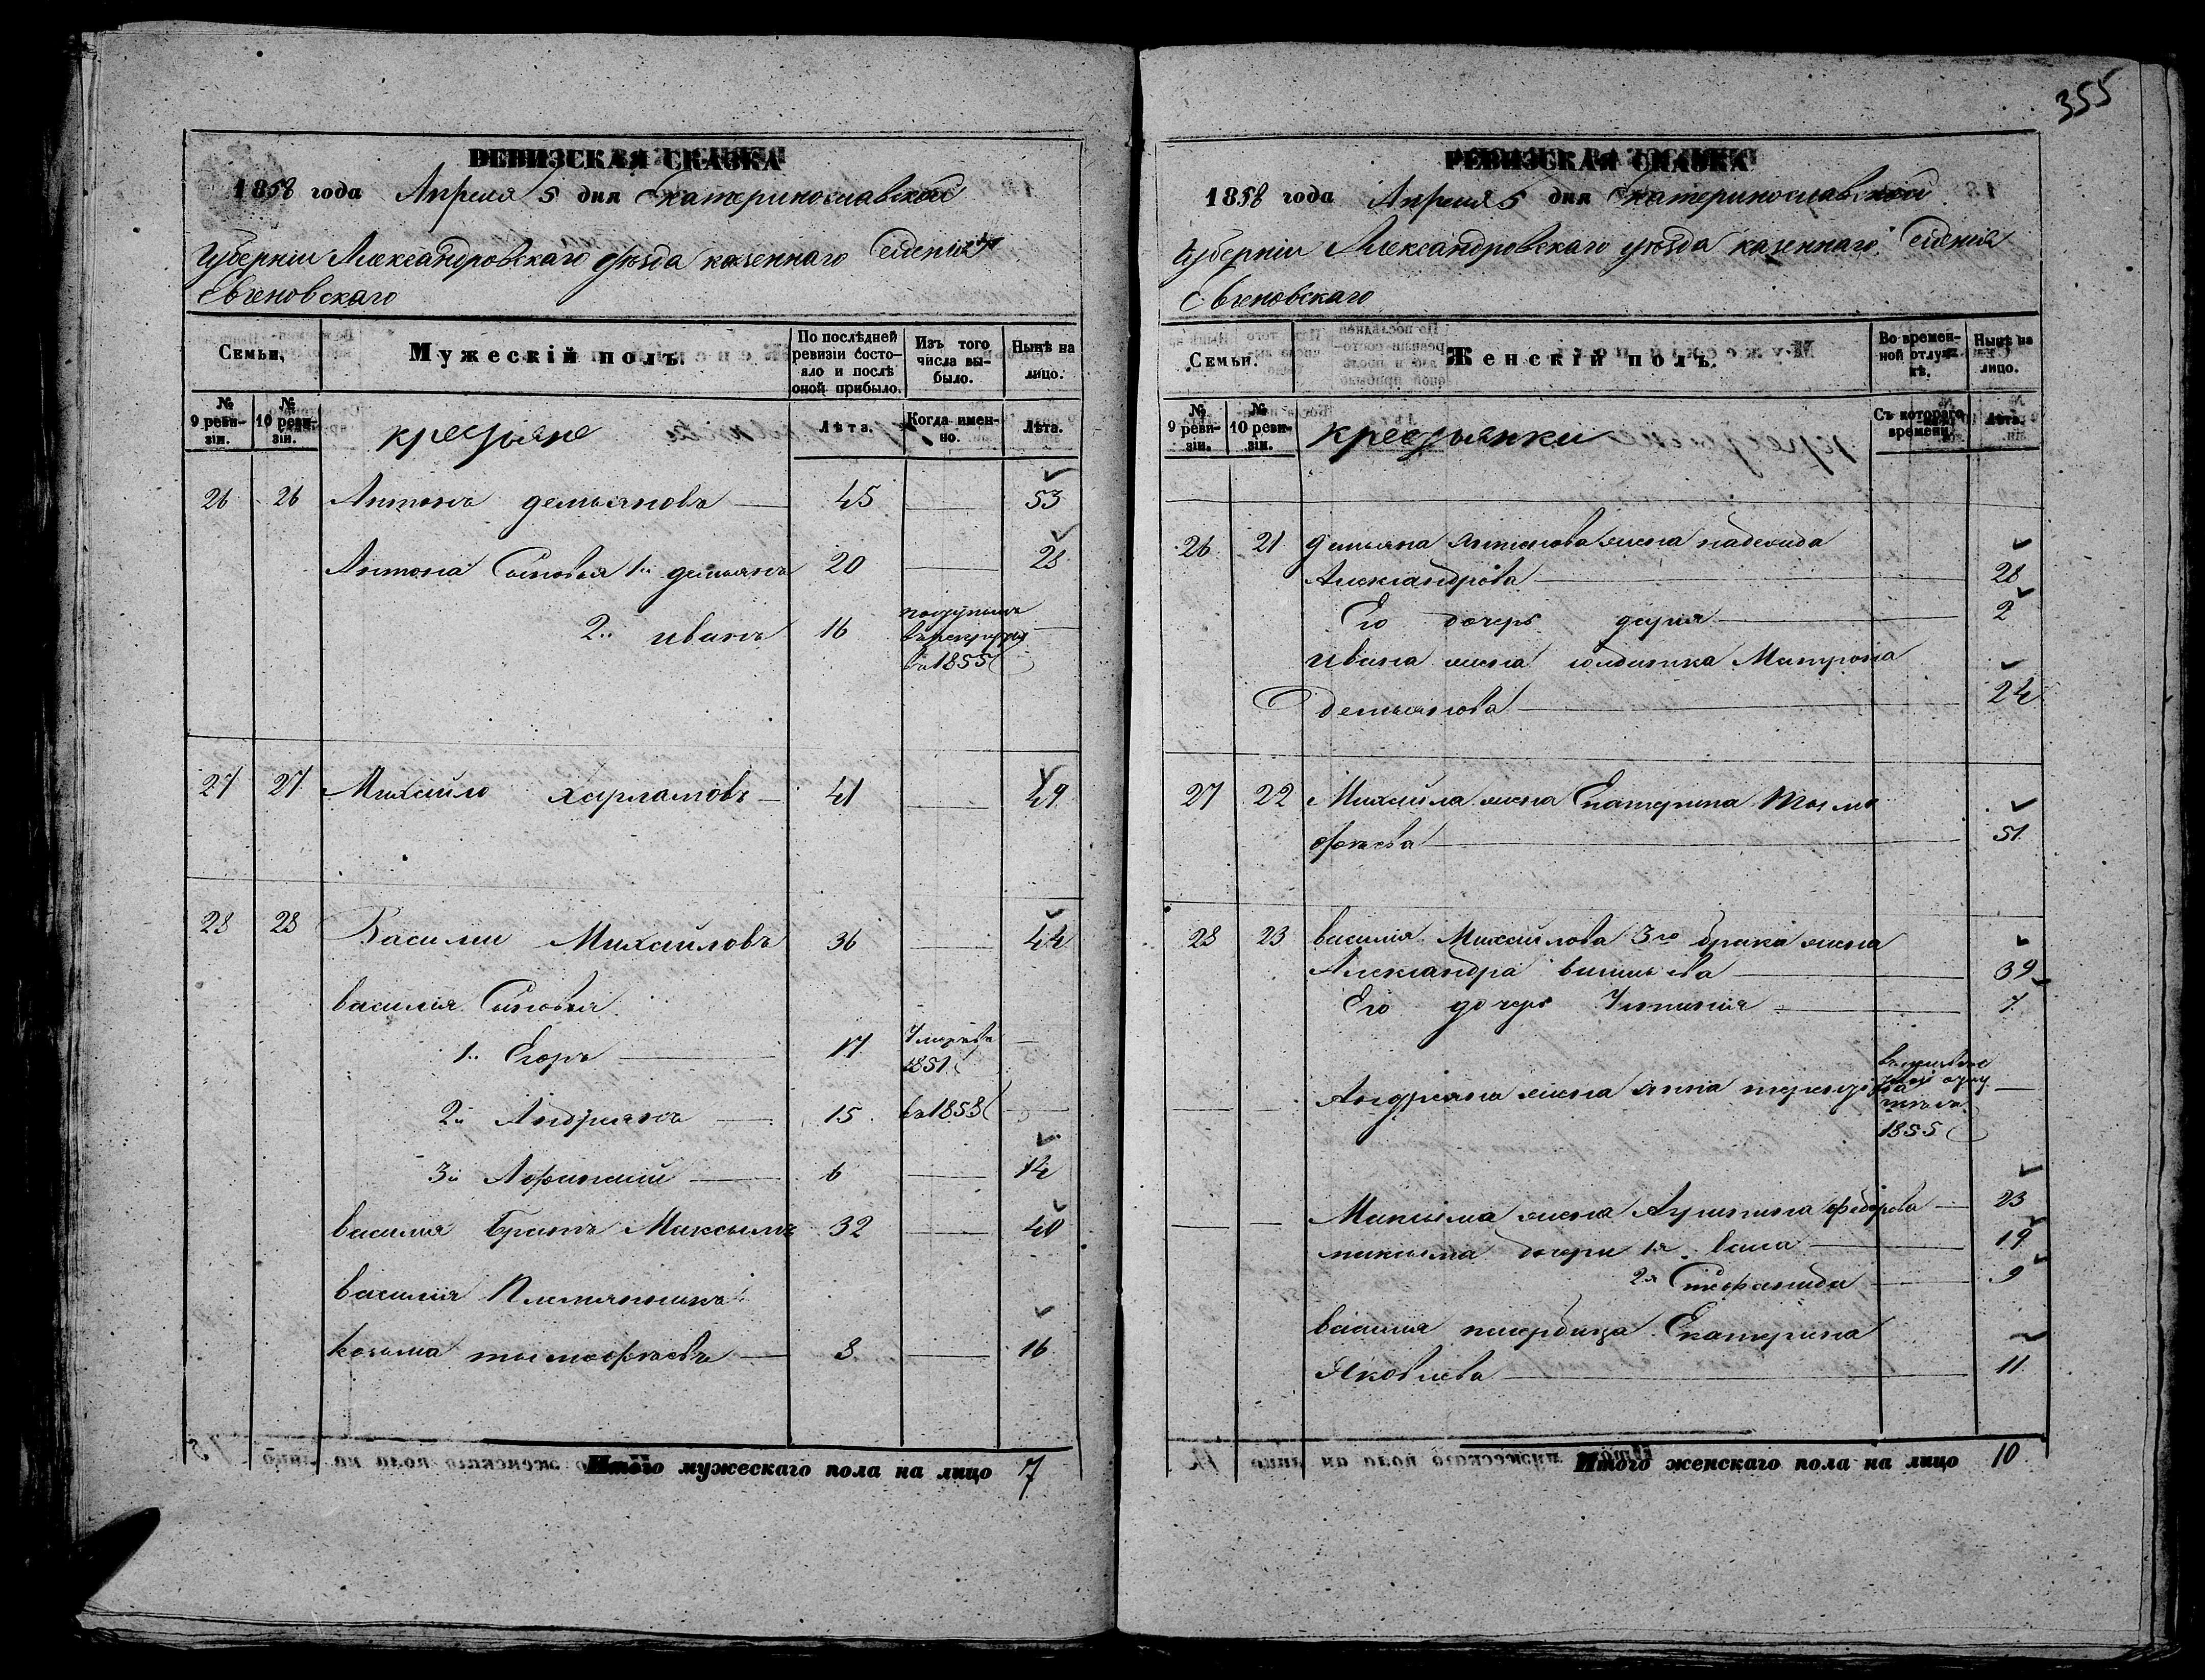 355
РЕВИЗСКАЯ СКАЗКА
1858 года Апреля 5 дня Екатеринославской
Губерніи Александровскаго уѣзда казеннаго Селенія
Евгеновскаго
Семьи, Мужескій полъ. По послѣдней ревизіи состояло и послѣ оной прибыло. Изъ того числа выбыло. Нынѣ на лицо.
№ 9 ревизіи. № 10 ревизіи. крестьяне Лѣта. Когда именно. Лѣта.
26 26 Антонъ демьяновъ 45 53
Антона Сыновья 1й демьянъ 20 28
2й иванъ 16 поступилъ в рекруты въ 1855
27 27 Михайло Харламовъ 41 49
28 28 Васили Михайловъ 36 44
василія Сыновья
1й Егоръ 17 Умре въ 1851
2й Андриянъ 15 въ 1853
3й Афанасий 6 14
василия братъ Максымъ 32 40
василия Племянникъ
козьма тымофѣевъ 8 16
Итого мужескаго пола на лицо 7
РЕВИЗСКАЯ СКАЗКА
1858 года Апреля 5 дня Екатеринославской
Губерніи Александровскаго уѣзда казеннаго Селенія
Евгеновскаго
Семьи. Женскій полъ. Во временной отлучкѣ. Нынѣ на лицо.
№ 9 ревизіи. № 10 ревизіи. крестьянки Съ котораго времени. Лѣта.
26 21 демьяна Антонова жена надежда
Александрова 28
Его дочерь дарья 2
ивана жена солдатка Матрона
Демьянова 24
27 22 Михаила жена Екатерина Тымо
фѣева 51
28 23 василия Михайлова 3го брака жена
Александра васильева 39
Его дочерь 7
Андрияна жена анна 1855
Максыма жена федорова 23
максыма дочери 1я васа 19
2я Стефанида 9
василия падчерица Екатерина
Яковлева 11
Итого женскаго пола на лицо 10